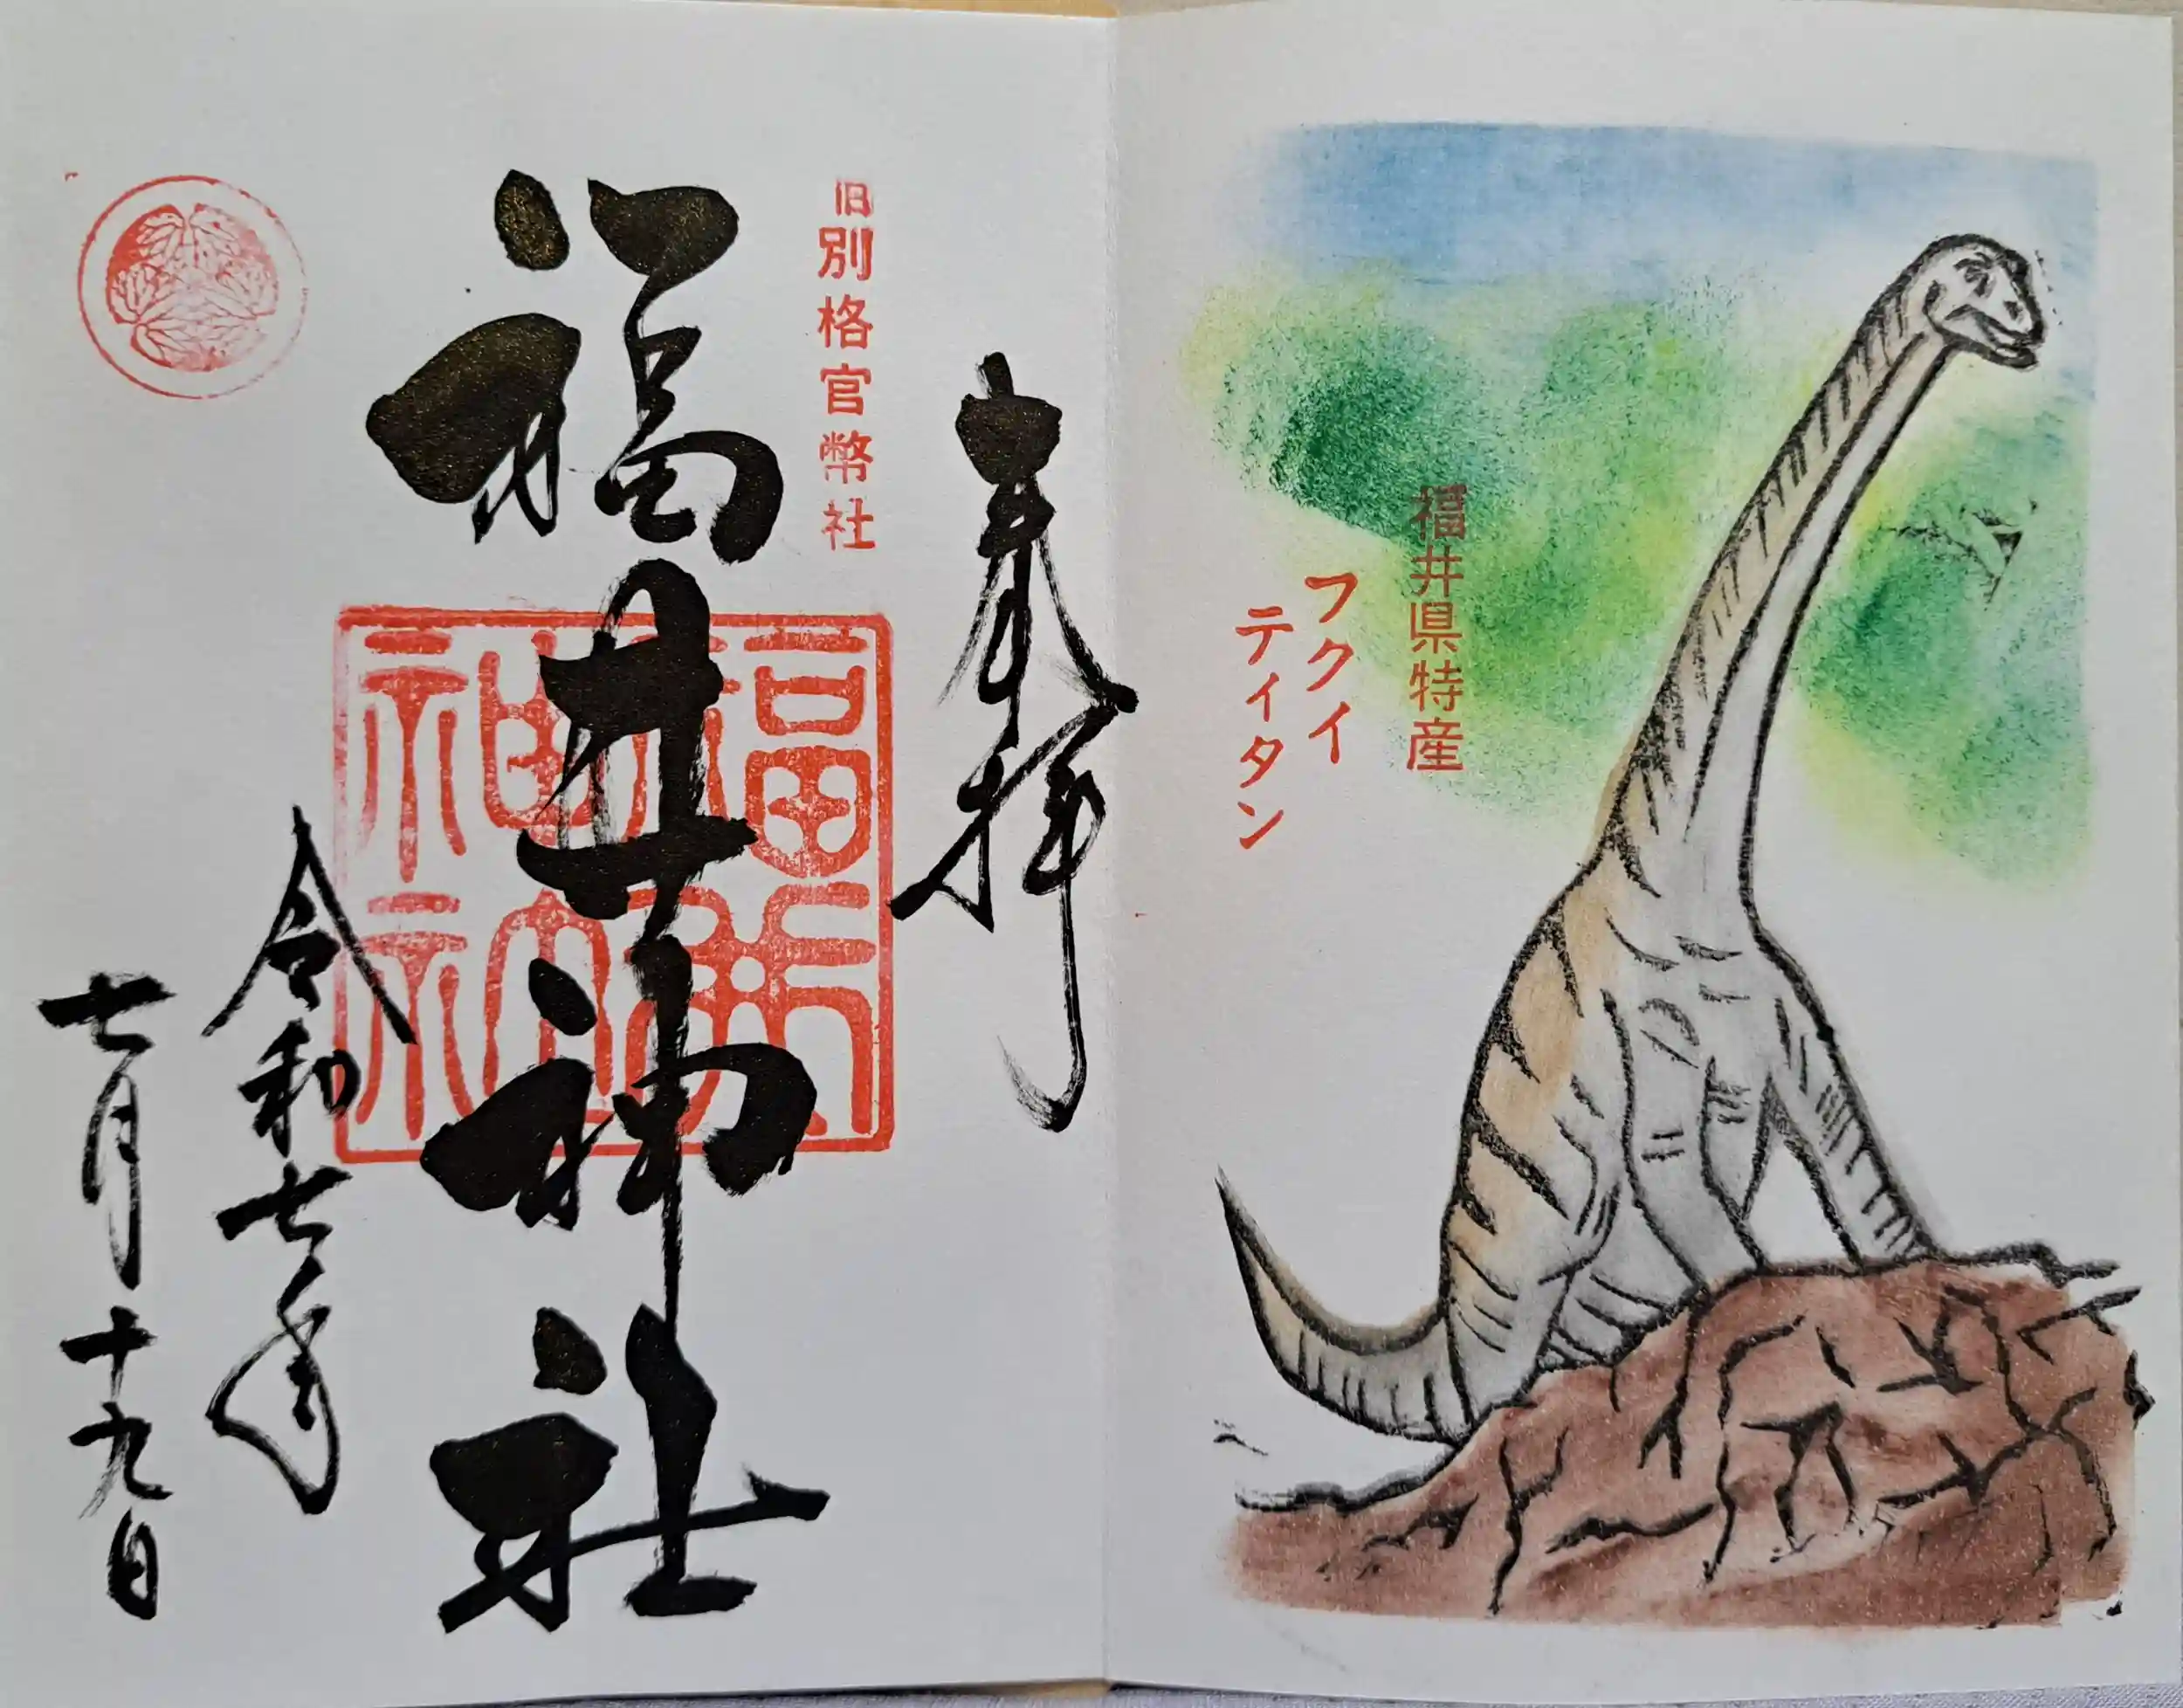 福井県特産
フクイ
ティタン
奉拝
旧別格官幣社
福井神社
福井神社
令和七年
七月十九日